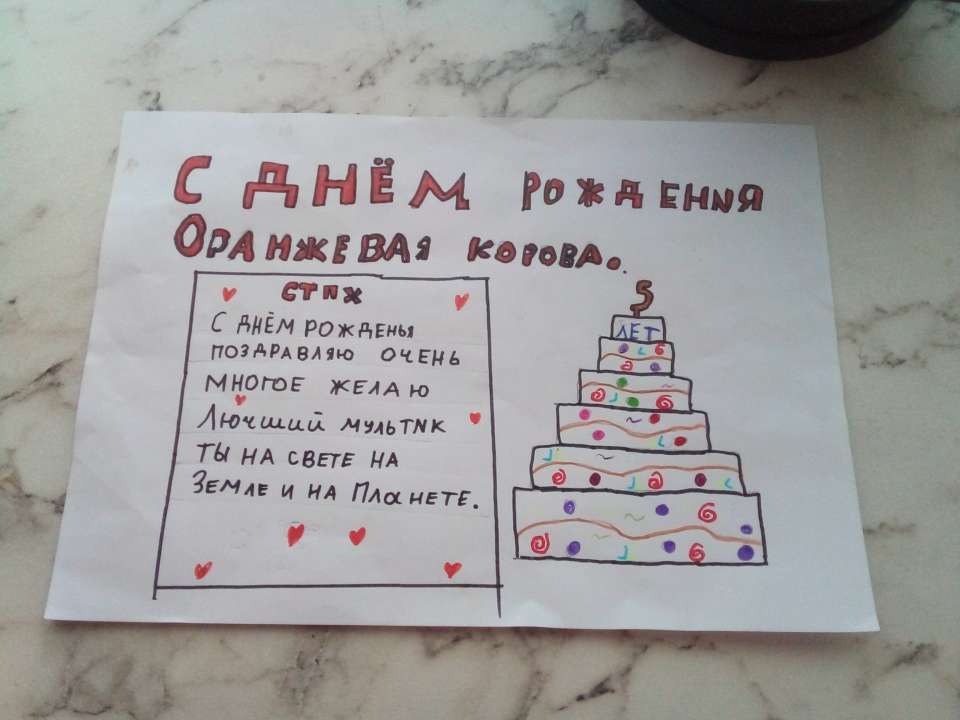 С ДНЁМ РОЖДЕНИЯ
ОРАНЖЕВАЯ КОРОВА.
СТПХ
С ДНЁМ РОЖДЕНЬЯ
ПОЗДРАВЛЯЮ ОЧЕНЬ
МНОГОЕ ЖЕЛАЮ
ЛЮЧШИЙ МУЛЬТИК
ТЫ НА СВЕТЕ НА
ЗЕМЛЕ И НА ПЛАНЕТЕ.
5
ЛЕТ